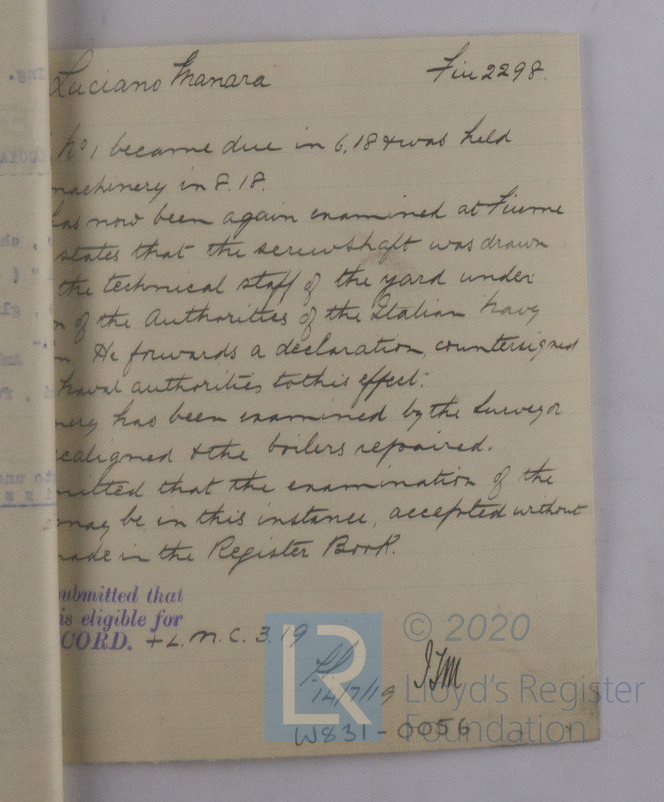 Luciano Manara Fiu 2298.
No 1 became due in 6.18 & was held
machinery in 8.18.
has now been again examined at Fiume
states that the screwshaft was drawn
the technical staff of the yard under
of the Authorities of the Italian Navy
He forwards a declaration, countersigned
naval authorities to this effect.
nery has been examined by the Surveyor
realigned & the boilers repaired.
mitted that the examination of the
may be in this instance, accepted without
made in the Register Book.
submitted that
is eligible for
CORD. + L.M.C. 3.19
14/7/19
W831-0056
LR
© 2020
Lloyd's Register
Foundation